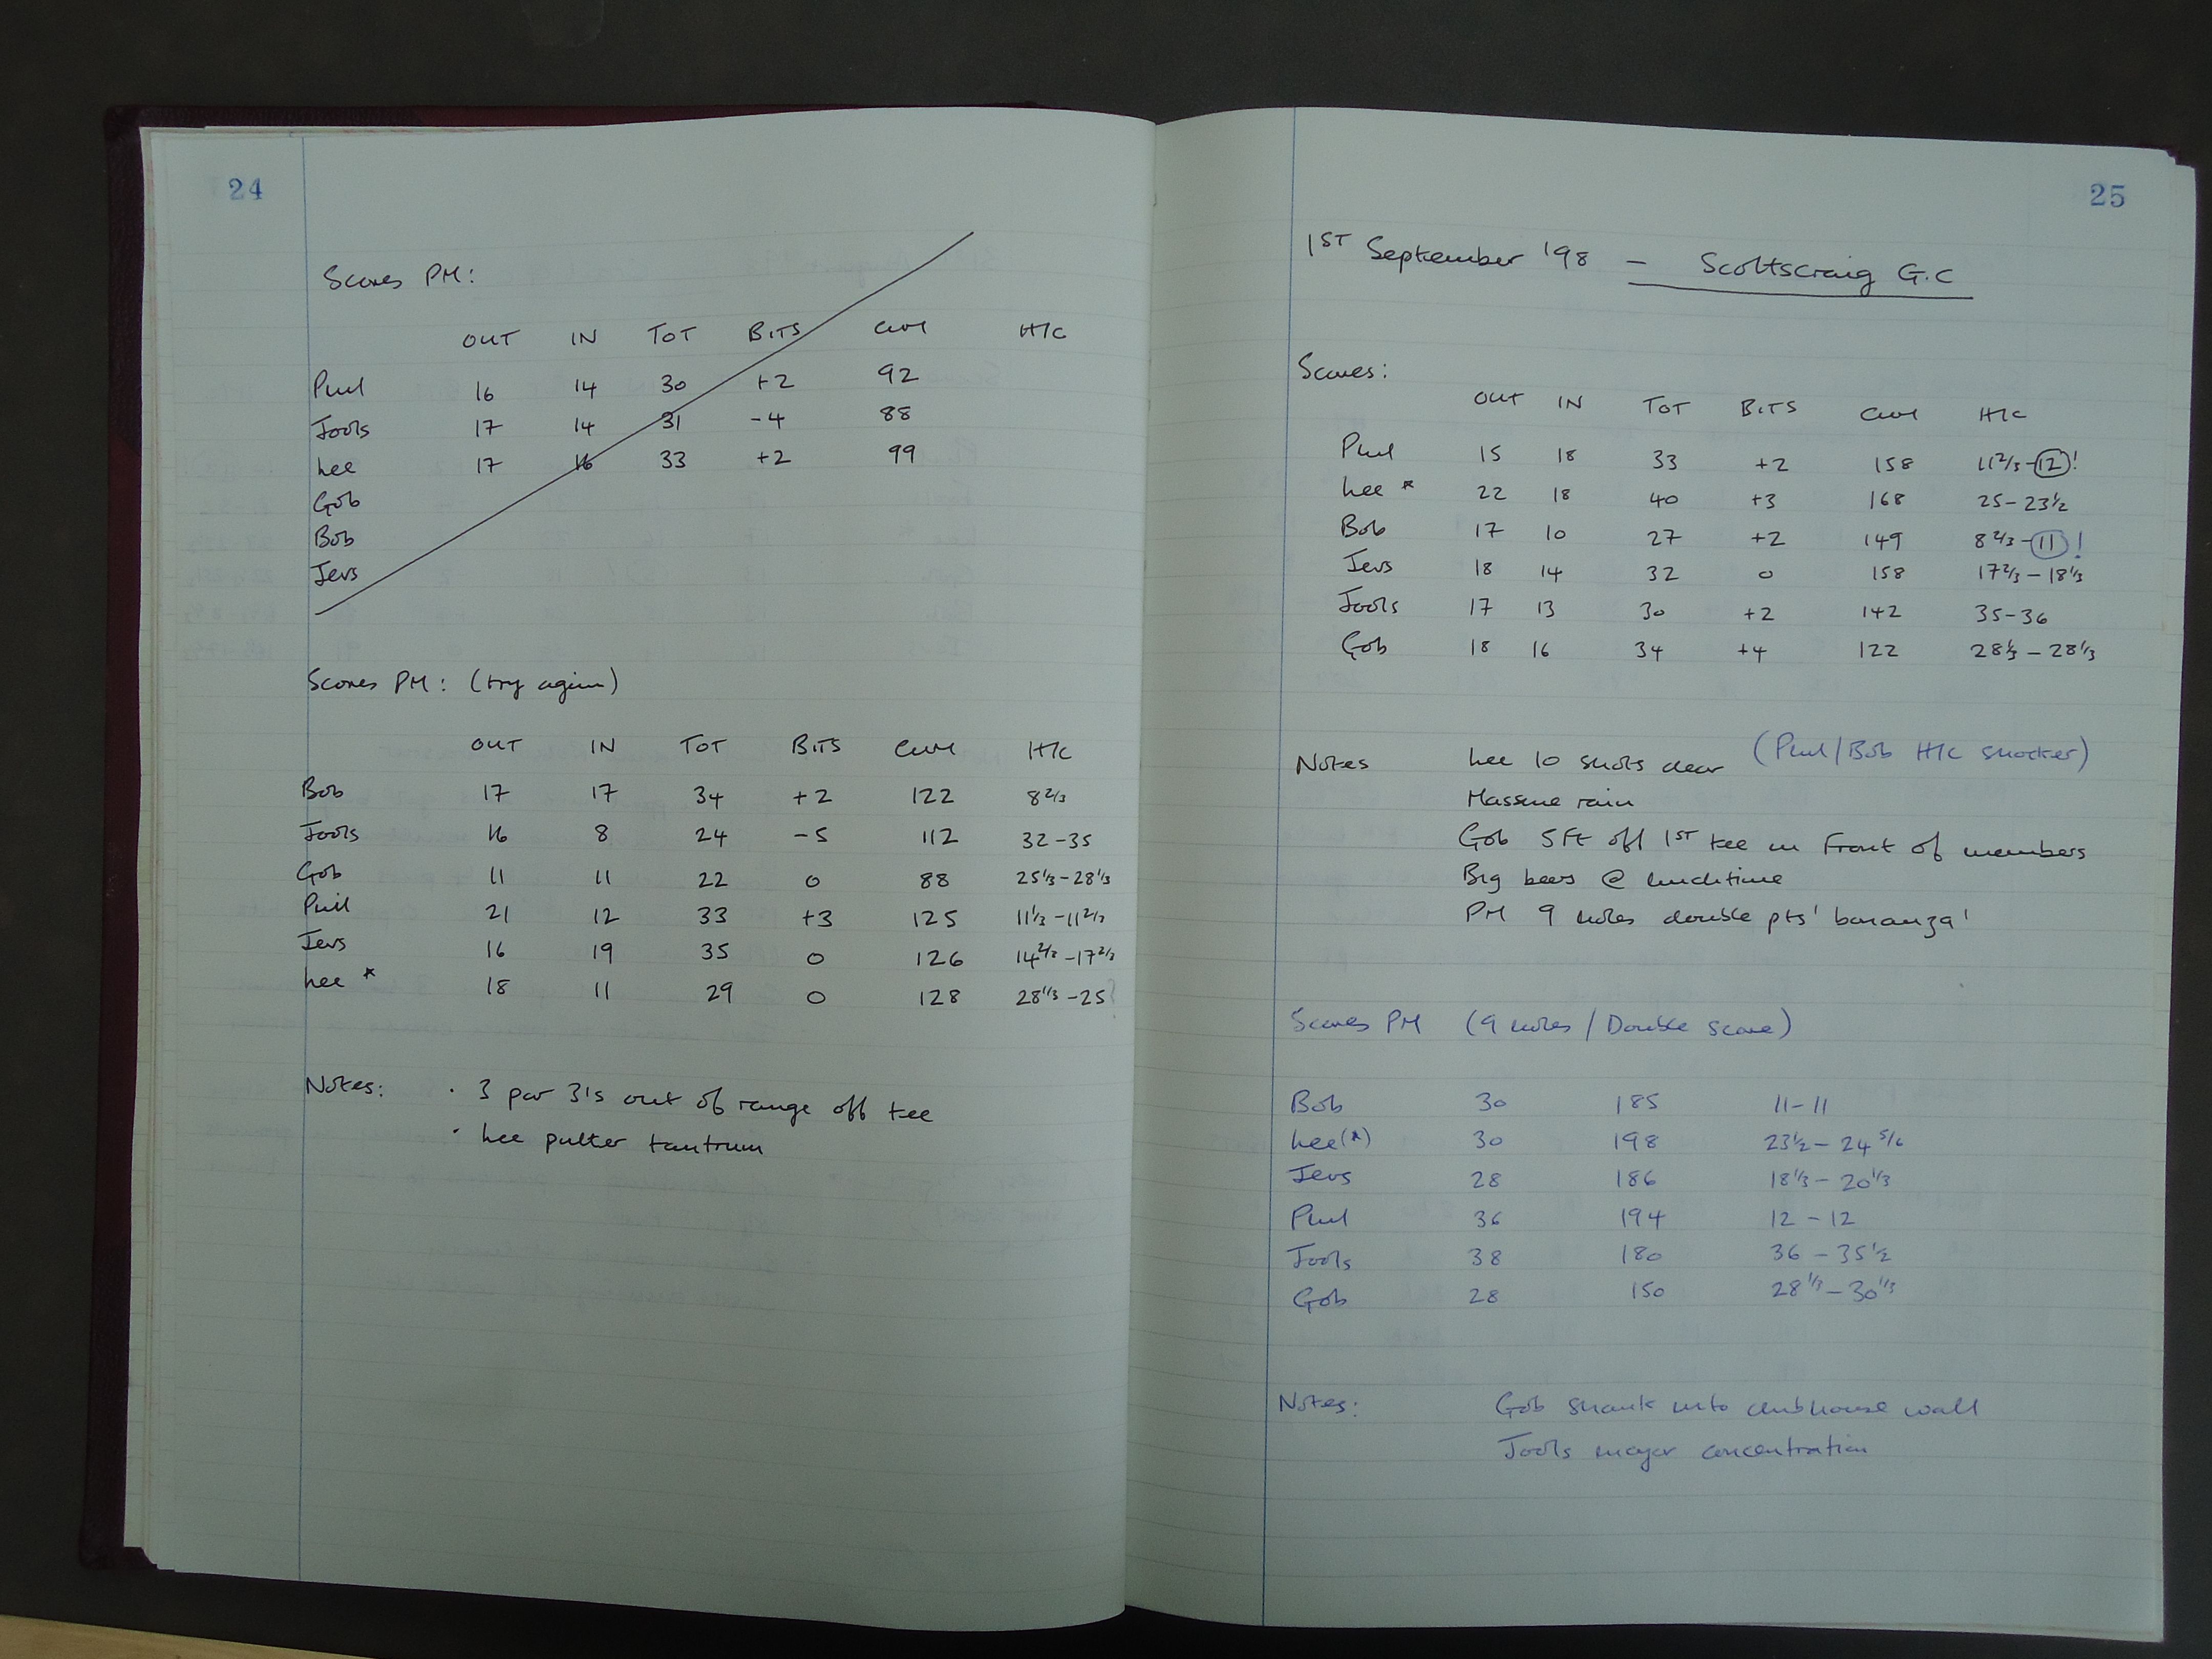 24
Scores PM:
OUT IN TOT BITS CUM H/C
Phil 16 14 30 +2 92
Jools 17 14 31 -4 88
Lee 17 16 33 +2 99
Gob
Bob
Jevs
Scores PM: (try again)
OUT IN TOT BITS CUM H/C
Bob 17 17 34 +2 122 8 2/3
Jools 16 8 24 -5 112 32-35
Gob 11 11 22 0 88 25 1/3 - 28 1/3
Phil 21 12 33 +3 125 11 1/3 - 11 2/3
Jevs 16 19 35 0 126 14 2/3 - 17 2/3
Lee * 18 11 29 0 128 28 1/3 - 25?
Notes: · 3 par 3's out of range off tee
· Lee putter tantrum
25
1ST September '98 - Scottscraig G.C
Scores:
OUT IN TOT BITS CUM H/C
Phil 15 18 33 +2 158 11 2/3 - 12!
Lee * 22 18 40 +3 168 25 - 23 1/2
Bob 17 10 27 +2 149 8 2/3 - 11!
Jevs 18 14 32 0 158 17 2/3 - 18 1/3
Jools 17 13 30 +2 142 35-36
Gob 18 16 34 +4 122 28 1/3 - 28 1/3
Notes Lee 10 shots clear (Phil/Bob H/C shocker)
Massive rain
Gob 5ft off 1ST tee in front of members
Big beers @ lunchtime
PM 9 holes double pts 'bonanza'
Scores PM (9 holes / Double score)
Bob 30 185 11-11
Lee(*) 30 198 23 1/2 - 24 5/6
Jevs 28 186 18 1/3 - 20 1/3
Phil 36 194 12 - 12
Jools 38 180 36 - 35 1/2
Gob 28 150 28 1/3 - 30 1/3
Notes: Gob shank into clubhouse wall
Jools major concentration